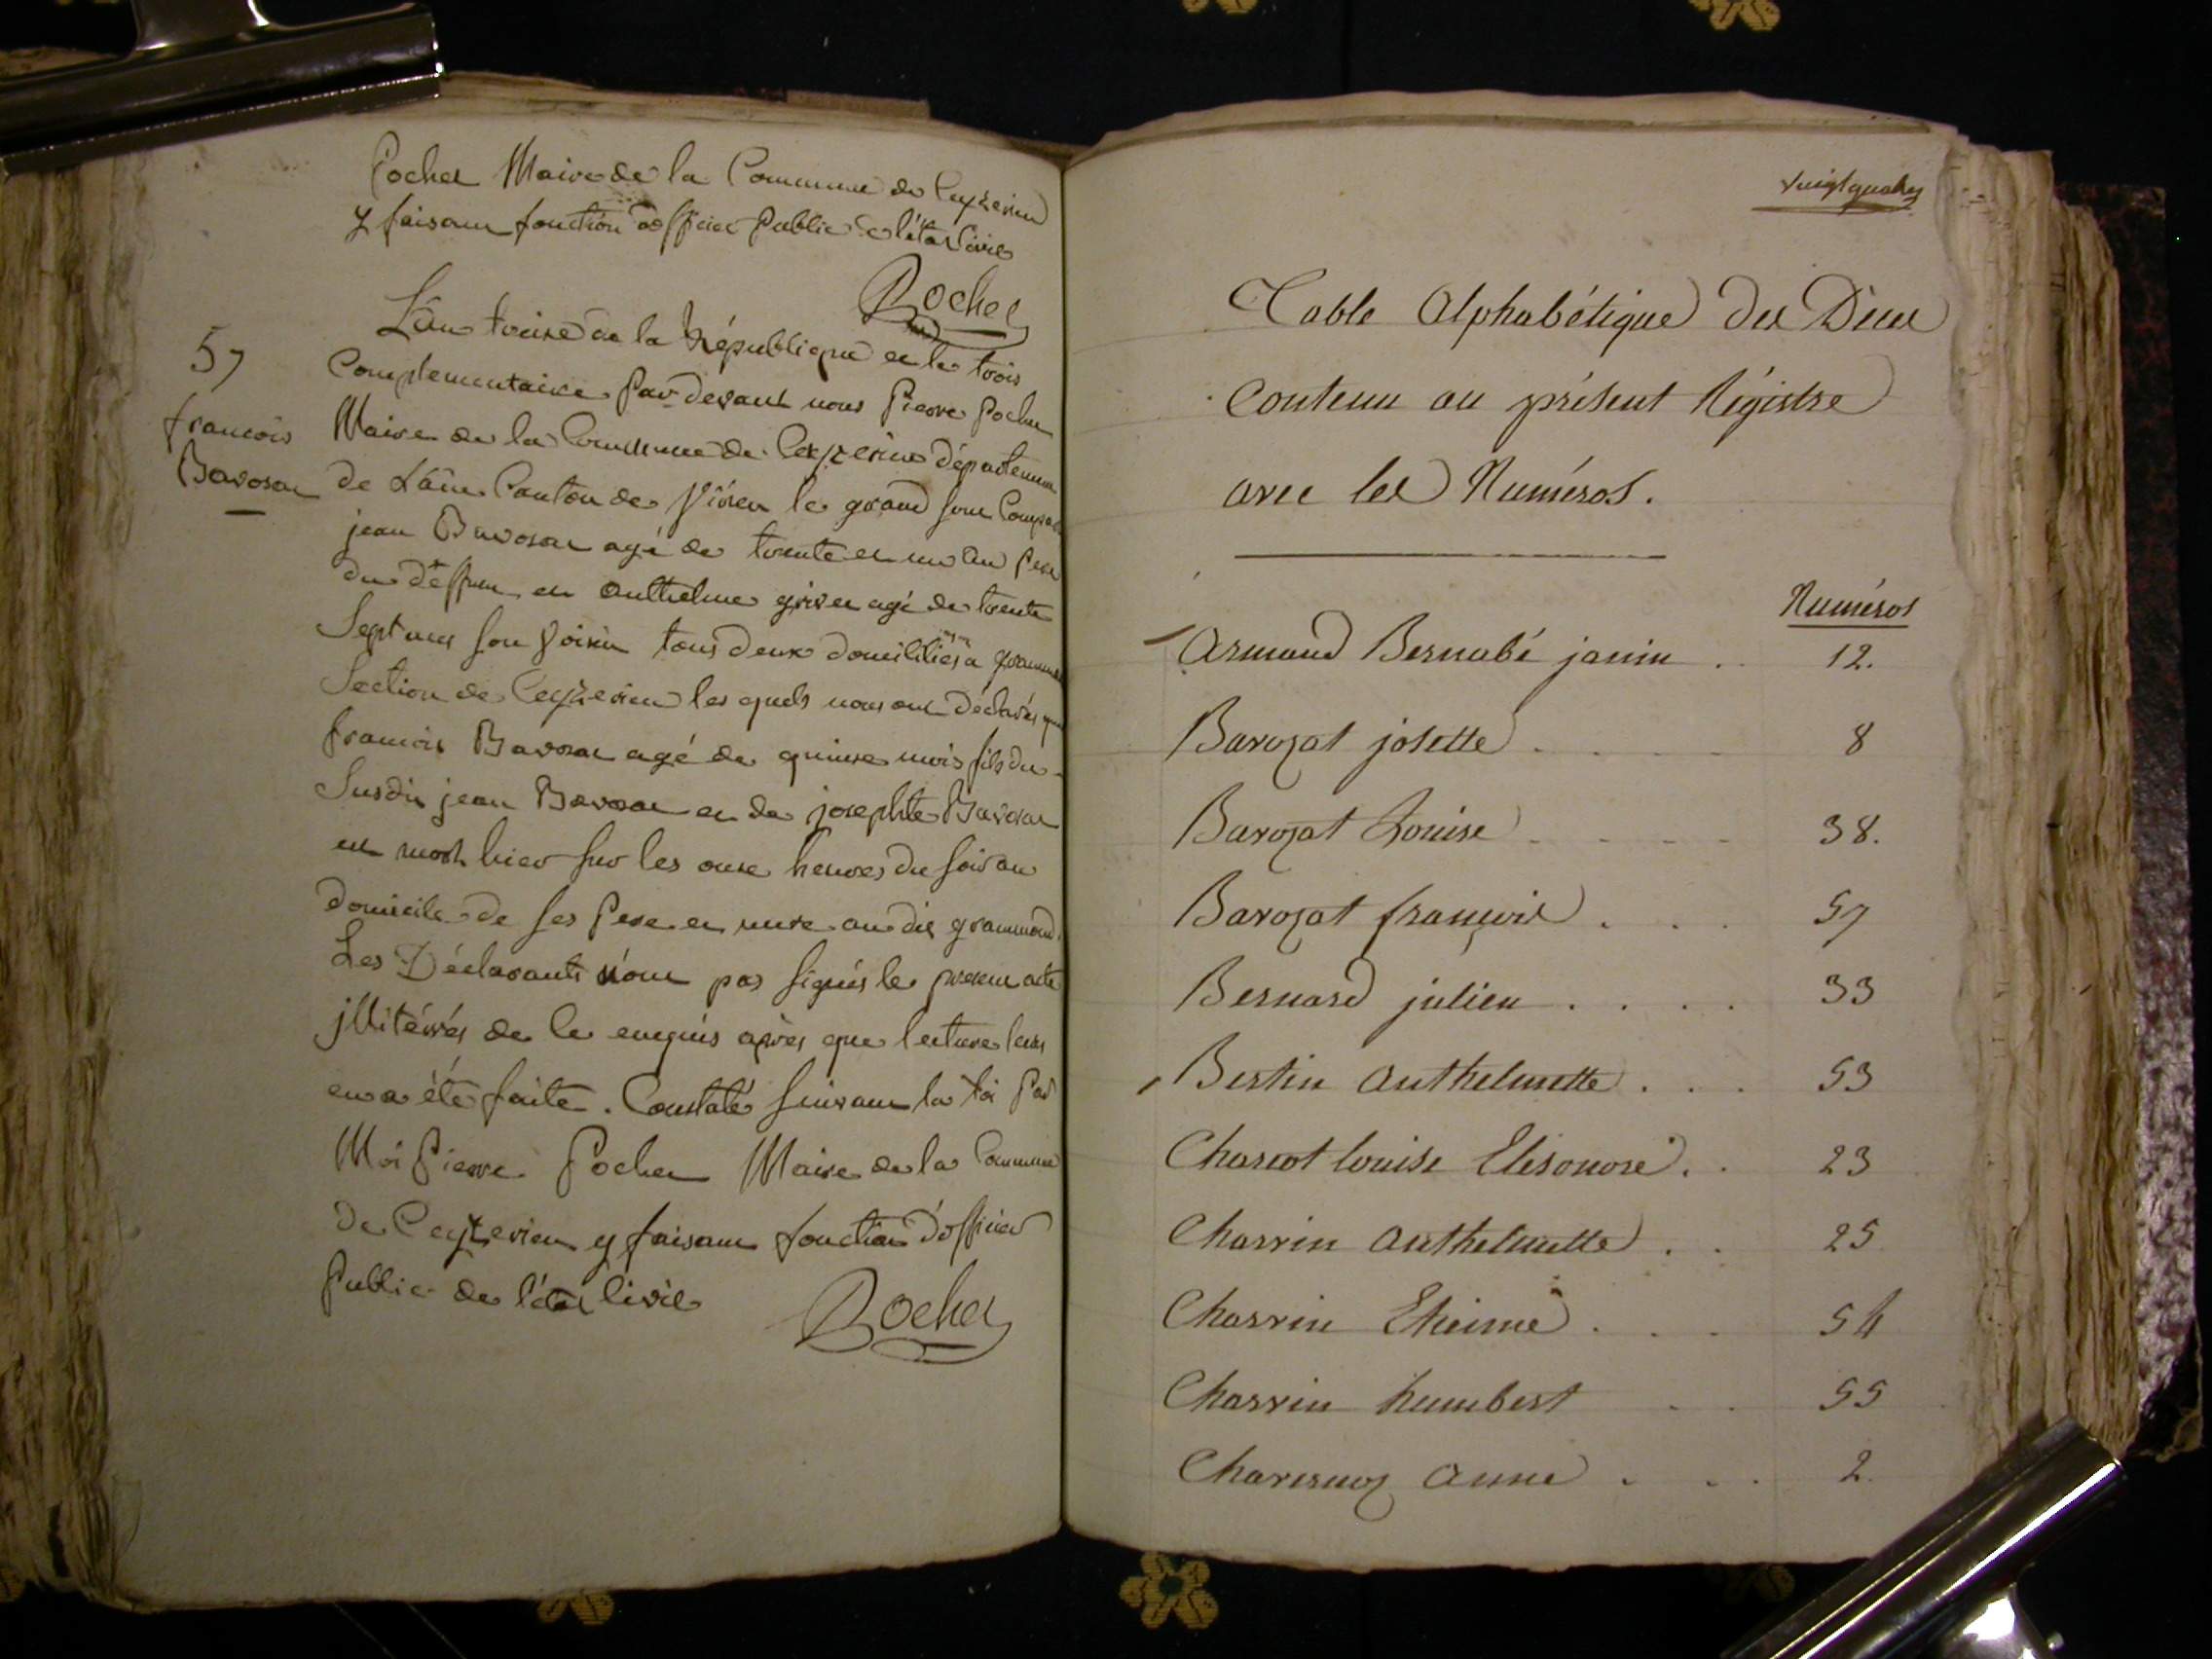 Pochet Maire de la Commune de Ceyzerieu
y faisant fonction d'officier Public de l'état Civil
Pochet
57
francois
Bavosat
L'an treize de la République et le trois
Complementaire Par devant nous Pierre Pochet
Maire de la Commune de Ceyzerieu département
de L'ain Canton de Virieu le grand sont Compar
jean Bavosat agé de trente et un an Pere
du deffun et Anthelme grivet agé de trente
Sept ans son Voisin tous deux domiciliés a grammond
Section de Ceyzerieu les quels nous ont Déclarés que
francois Bavosat agé de quinse mois fils du
Susdit jean Bavosat et de josephte Bavosat
est mort hier sur les onse heures du soir au
domicile de ses Pere et mere au dit grammond.
Les Déclarants n'ont pas signés le present acte
jllitérrés de ce enquis après que lecture leurs
en a été faite. Constaté suivant la loi Par
Moi Pierre Pochet Maire de la Commune
de Ceyzerieu y faisant fonction d'officier
Public de l'état Civil
Pochet
vingt quatre
Table Alphabétique des Décès
Contenu au présent Régistre
avec les Numéros.
Numéros
Armand Bernabé janin . . 12.
Barozat josette . . . . 8
Barozat Louise . . . . 38.
Barozat françois . . . 57
Bernard julien . . . . 33
Bertin Anthelmette . . . 53
Charcot louise Eléonore . . 23
Charvin Anthelmette . . 25
Charvin Etienne . . . 54
Charvin humbert . . 55
anne . . . 2.